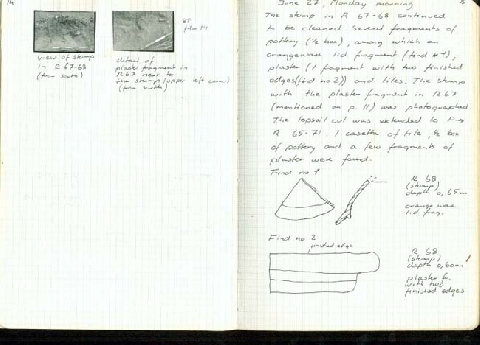 14
view of stamp
in R 67-68
(from south)
detail of
plaster fragment in
R 67 next to
the stamp (upper left corner)
(from south)
June 27, Monday morning
The stamp in R 67-68 continued
to be cleaned. Several fragments of
pottery (½ box), among which an
orangeware lid fragment (find #1),
plaster (1 fragment with two finished
edges (find no 2)) and tiles. The stamp
with the plaster fragment in R 67
(mentioned on p. 11) was photographed.
The topsoil cut was extended to
R 65-71. 1 cassette of tile, ½ box
of pottery and a few fragments of
plaster were found.
Find no 1
R 68
(stamp)
depth 0,55m
orangeware
lid frag.
Find no 2
finished edge
R 68
(stamp)
depth 0,60m
plaster fr.
with two
finished edges